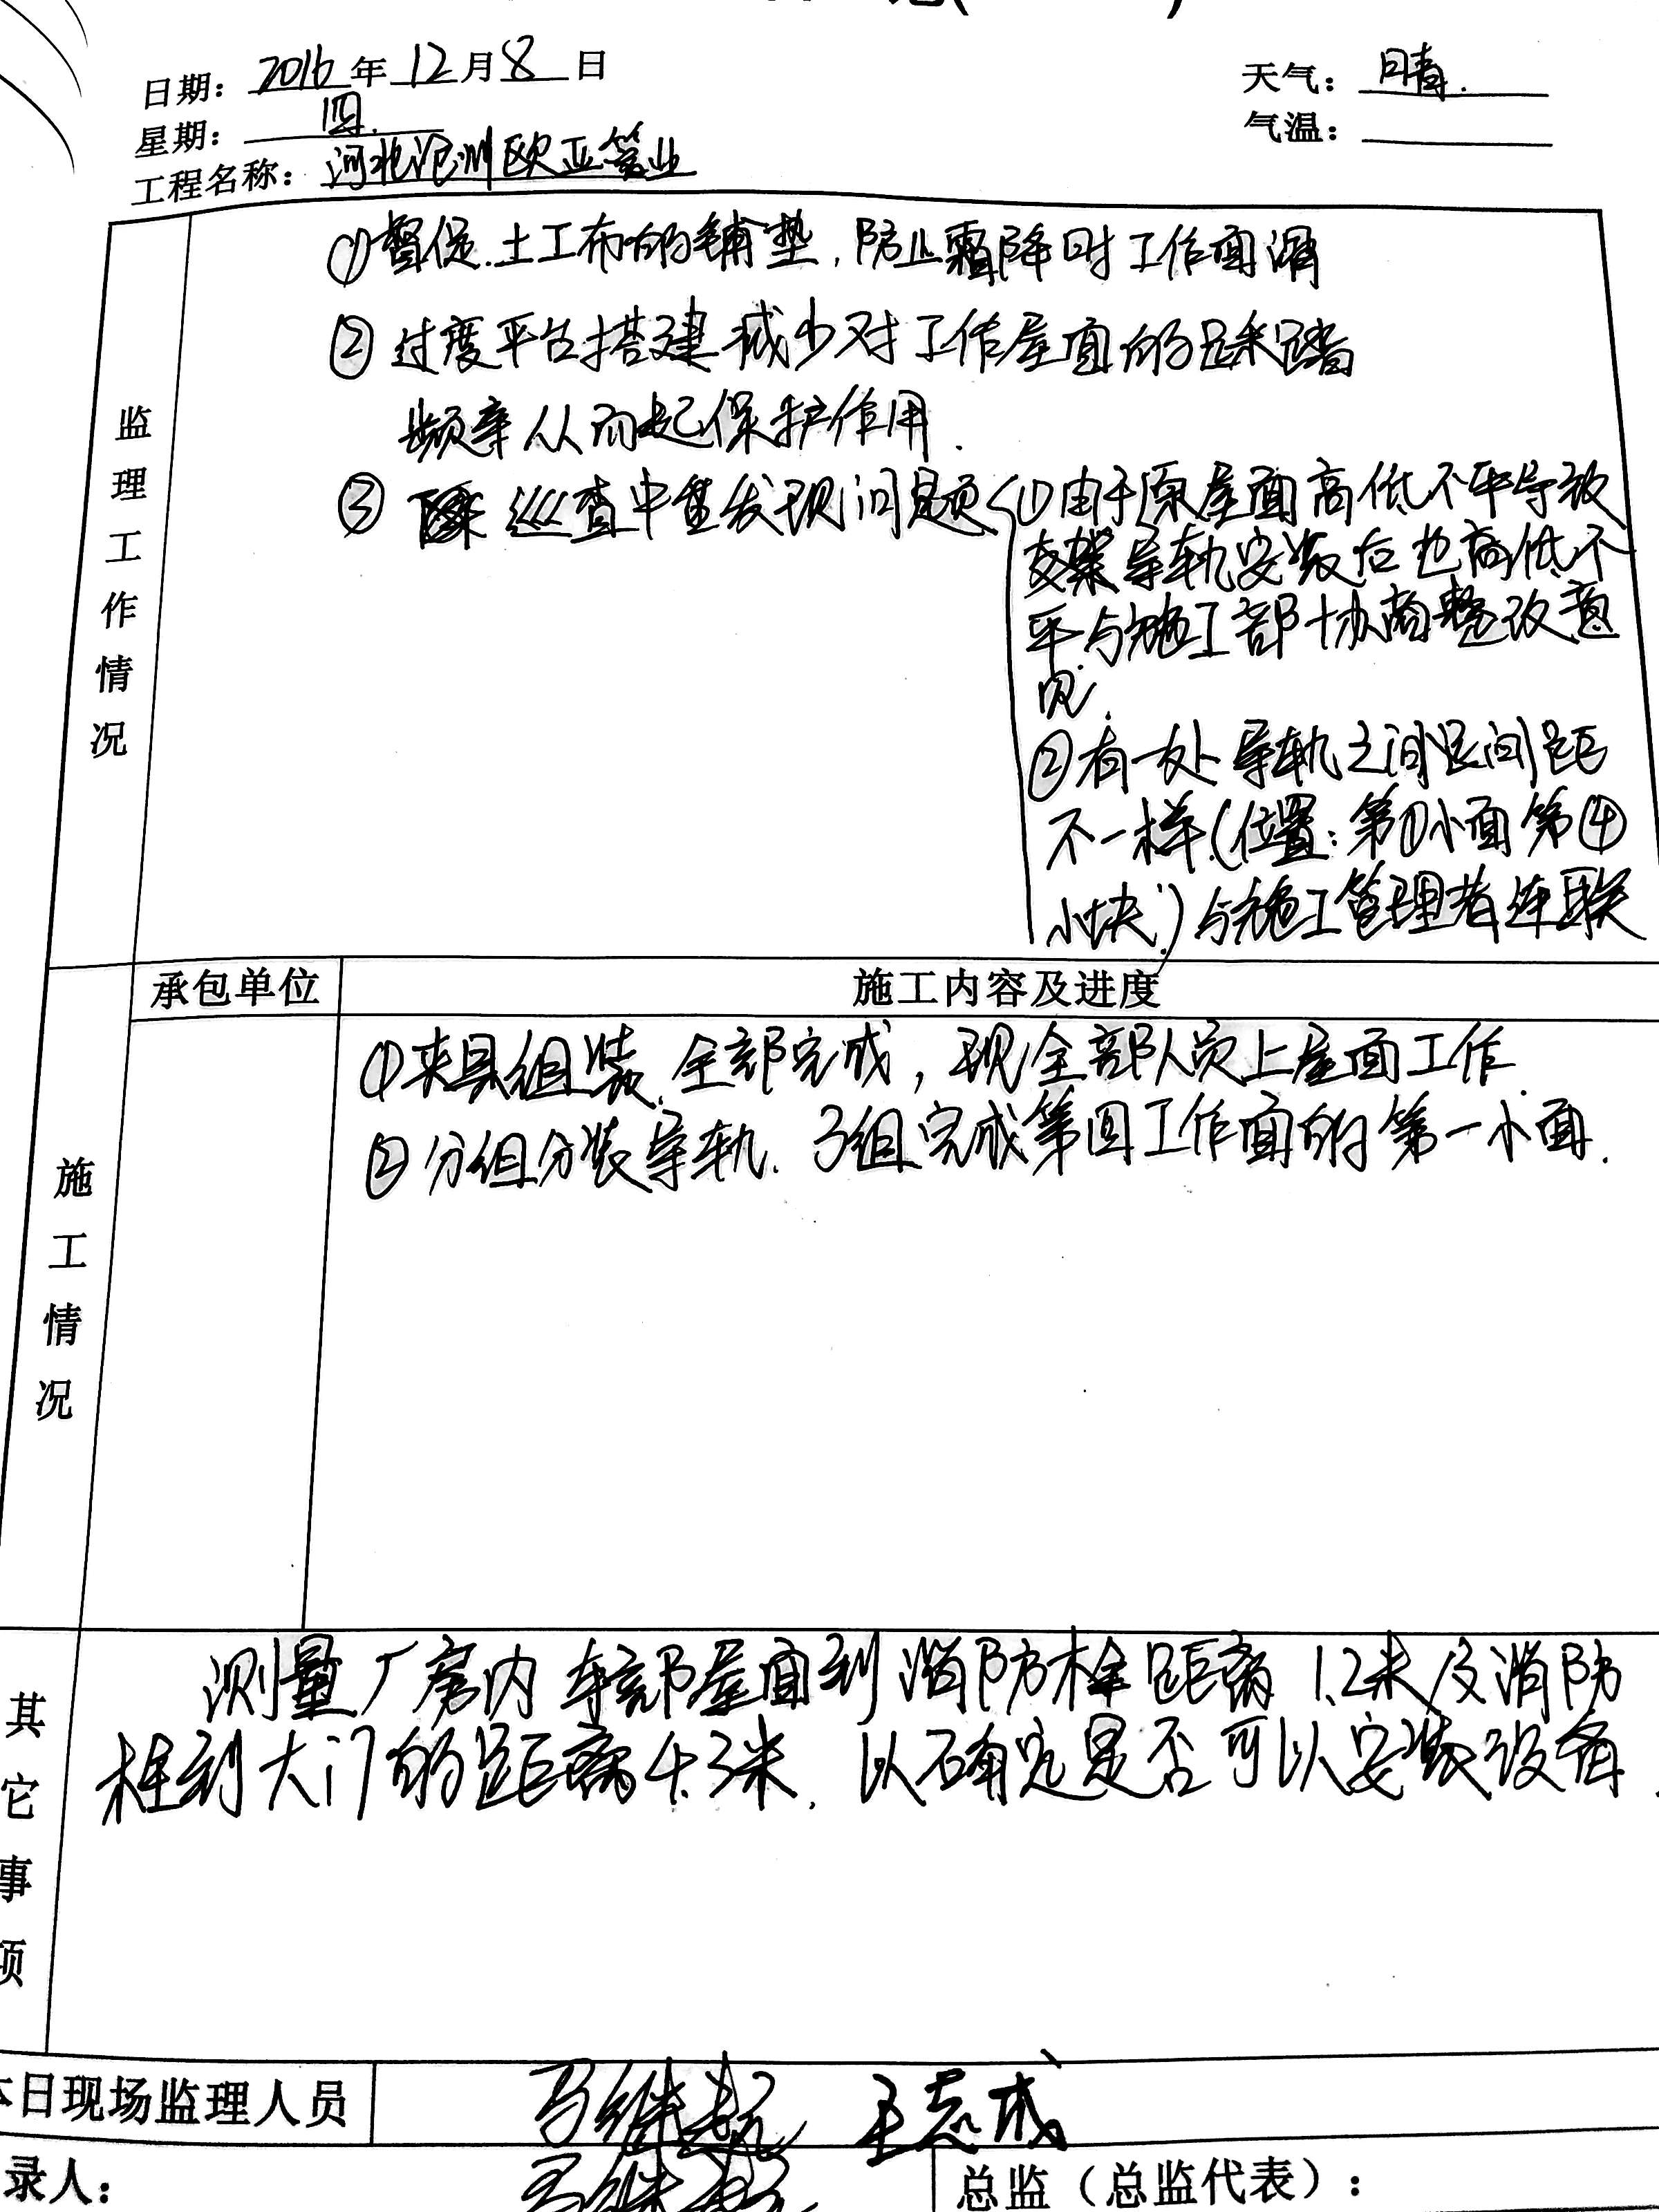 日期：2016年12月8日
天气：晴.
星期：四.
气温：
工程名称：河北沧州欧亚管业
监理工作情况
①督促.土工布的铺垫，防止霜降时工作面滑
②过度平台搭建 减少对工作屋面的踩踏
频率从而起保护作用.
③ 巡查中发现问题
①由于原屋面高低不平导致
支架导轨安装后也高低不
平与施工部协商整改意
见.
②有一处导轨之间区间距
不一样(位置:第①小面第④
小块.)与施工管理者连联
承包单位
施工内容及进度
施工情况
①夹具组装.全部完成，现全部人员上屋面工作.
②分组分装导轨.3组完成第四工作面的第一小面.
其它事项
测量厂房内 车部屋面到消防栓距离1.2米及消防
栓到大门的距离4.3米.以确定是否可以安装设备.
本日现场监理人员
王志成
录人：
总监（总监代表）：